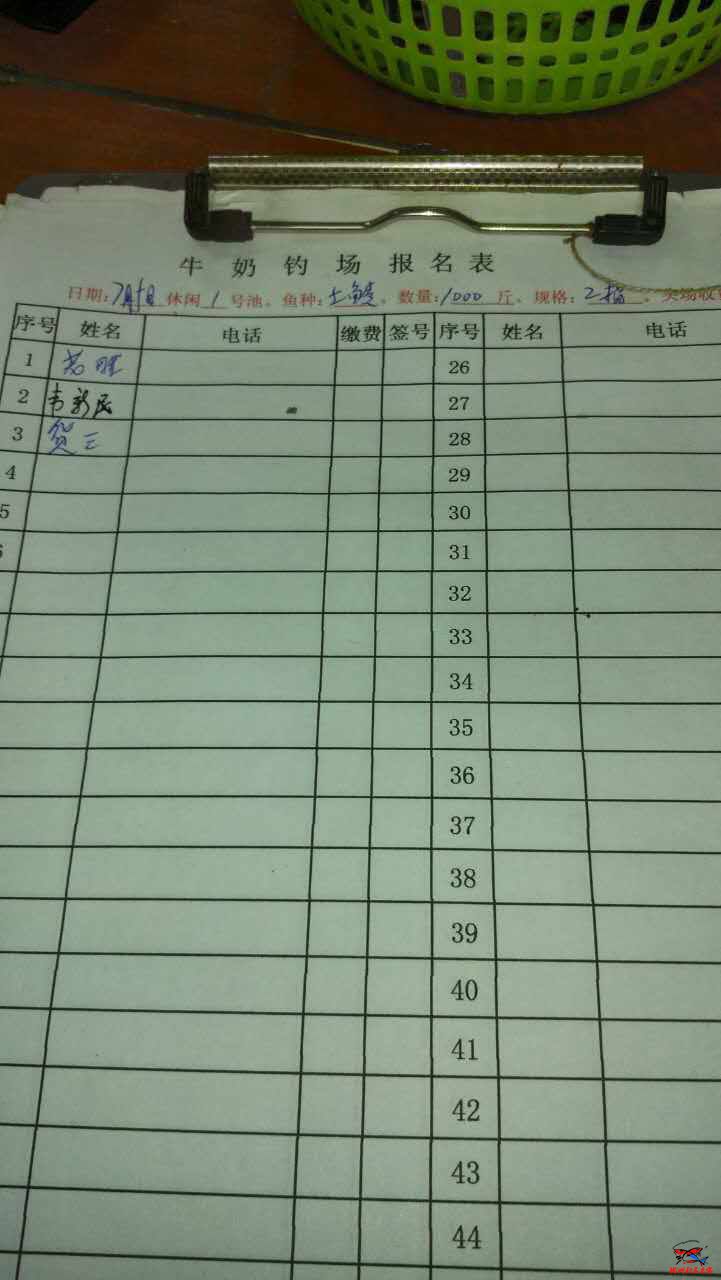 牛奶钓场报名表
日期:7月 日 休闲 1 号池。鱼种:土鲮。数量:1000 斤。规格:二指。
序号 姓名 电话 缴费 签号 序号 姓名 电话
1 26
2 韦新民 27
3 贺三 28
4 29
5 30
31
32
33
34
35
36
37
38
39
40
41
42
43
44